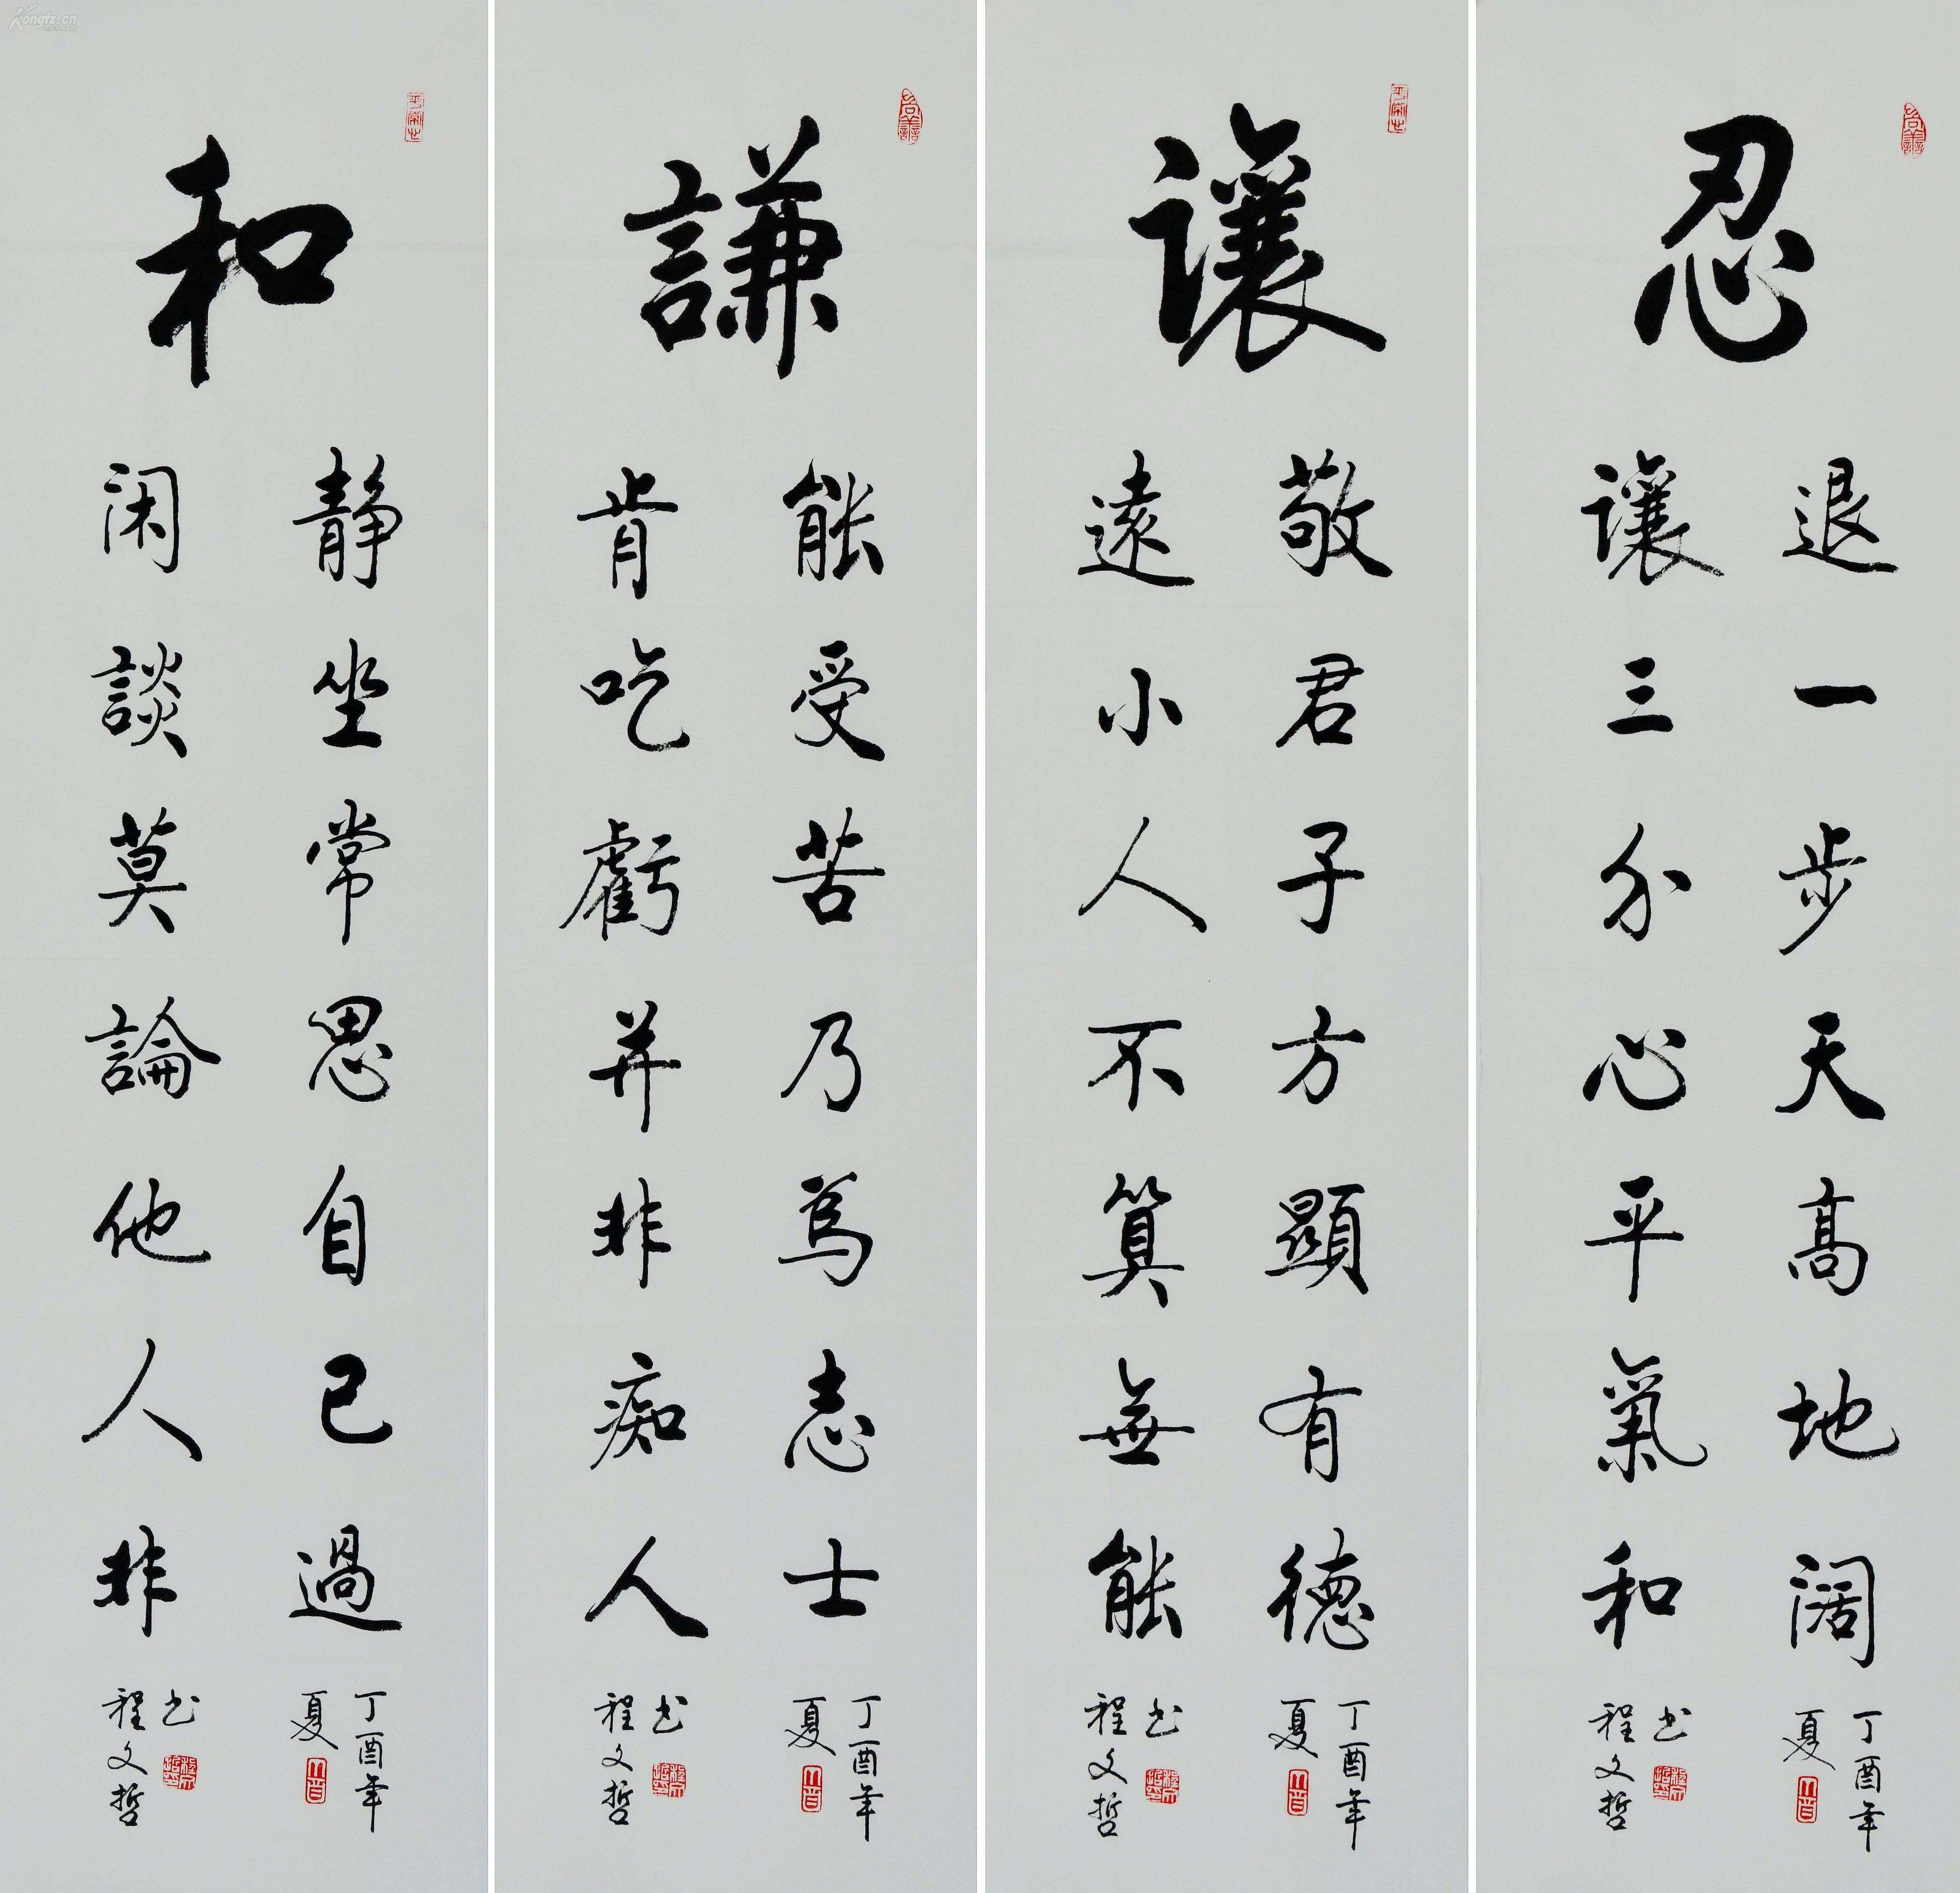 忍
退一步天高地阔
讓三分心平氣和
丁酉年
夏
程文哲
书
讓
敬君子方顯有德
遠小人不算無能
丁酉年
夏
程文哲
书
謙
能受苦乃為志士
肯吃虧并非痴人
丁酉年
夏
程文哲
书
和
静坐常思自己過
闲談莫論他人非
丁酉年
夏
程文哲
书
Kongfz.cn